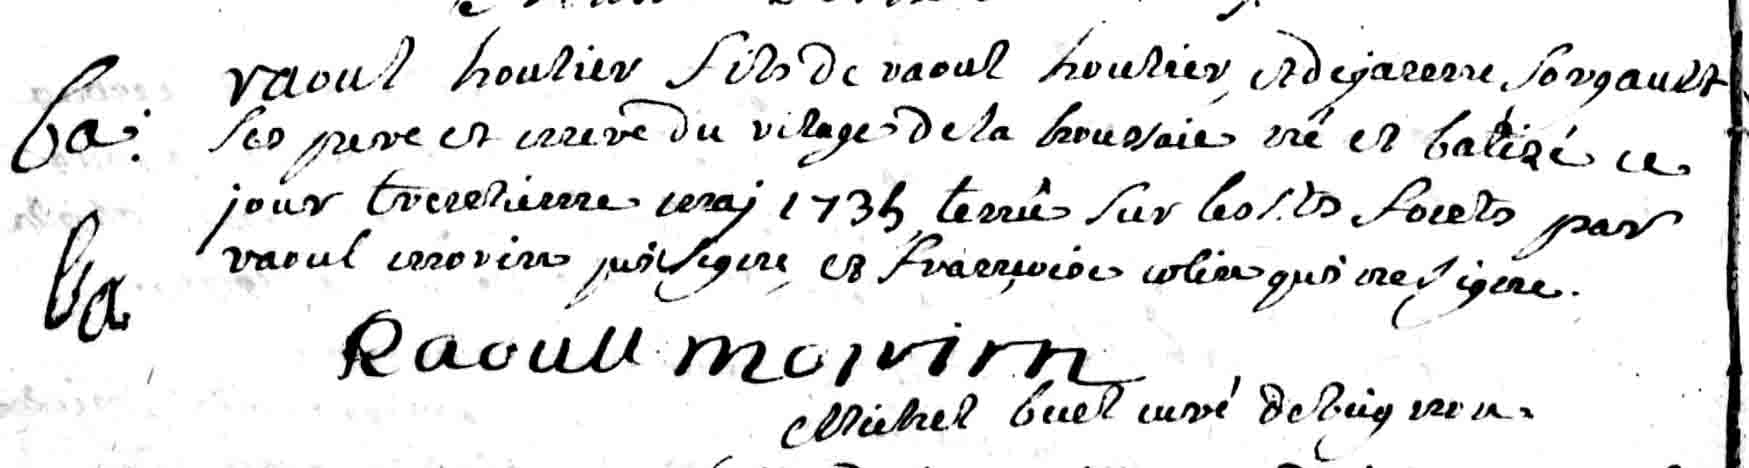 ba:
raoul houlier fils de raoul houlier, et de janne sorgault
ses pere et mere du vilage de la houssaie né et batizé ce
jour trentieme maj 1735 tenu sur les sts fonts par
raoul morin qui signe, et francoise colin qui ne signe.
ba
Raoull morvinn
Michel buet curé de